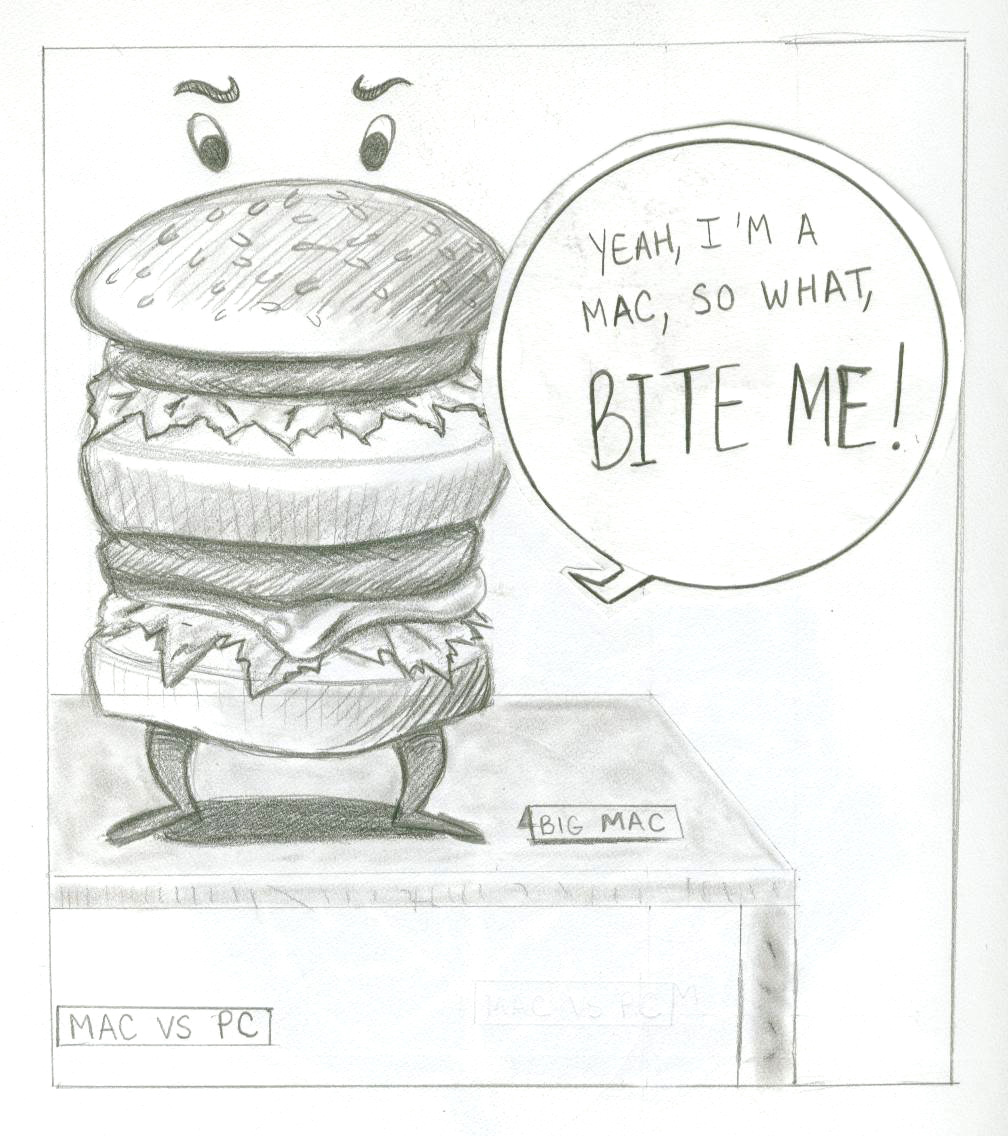 YEAH, I'M A
MAC, SO WHAT,
BITE ME!
BIG MAC
MAC VS PC
MAC VS PC M